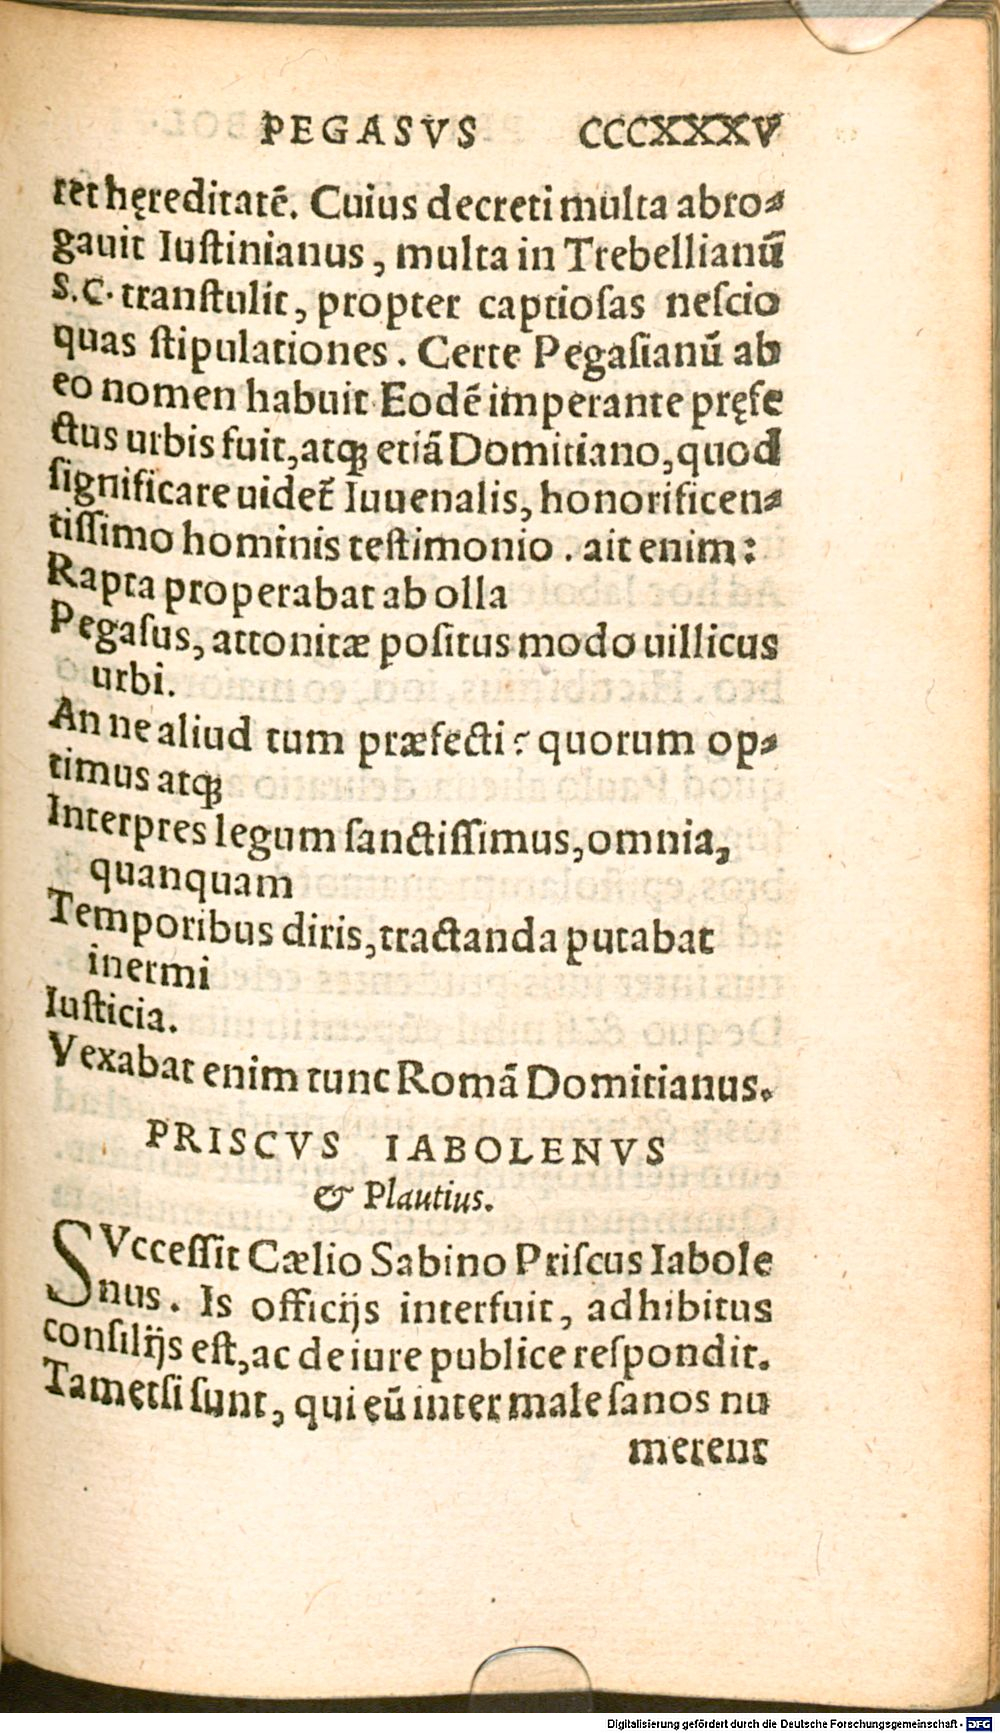 PEGASVS CCCXXXV
ret hęreditatē. Cuius decreti multa abro⸗
gauit Iuſtinianus, multa in Trebellianū
S.C. tranſtulit, propter captioſas neſcio
quas ſtipulationes. Certe Pegaſianū ab
eo nomen habuit. Eodē imperante pręfe
ctus urbis fuit, atq; etiā Domitiano, quod
ſignificare uidet᷑ Iuuenalis, honorificen⸗
tiſſimo hominis teſtimonio. ait enim:
Rapta properabat ab olla
Pegaſus, attonitæ poſitus modo uillicus
urbi.
An ne aliud tum præfecti? quorum op⸗
timus atq;
Interpres legum ſanctiſſimus, omnia,
quanquam
Temporibus diris, tractanda putabat
inermi
Iuſticia.
Vexabat enim tunc Romā Domitianus.
PRISCVS IABOLENVS
& Plautius.
SVcceſſit Cælio Sabino Priſcus Iabole
nus. Is officijs interfuit, adhibitus
conſilijs eſt, ac de iure publice reſpondit.
Tametſi ſunt, qui eū inter male ſanos nu
merent
Digitalisierung gefördert durch die Deutsche Forschungsgemeinschaft - DFG